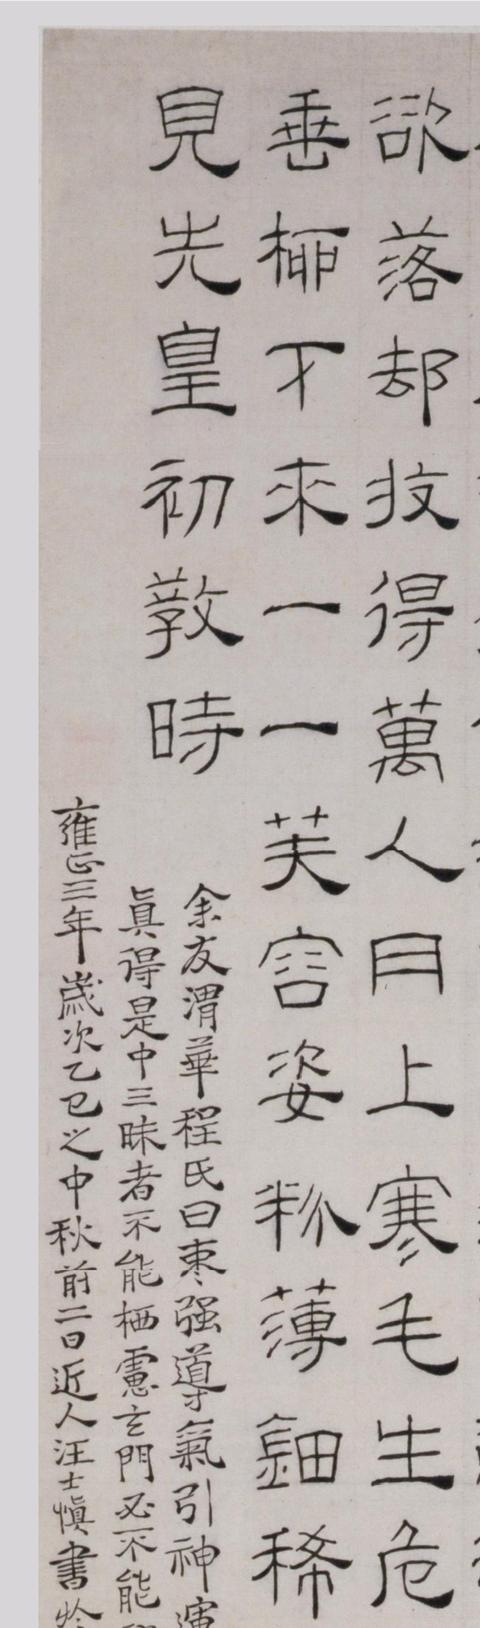 欲落却收得萬人月上寒毛生危
垂柳下來一一芙容姿粉薄鈿稀
見先皇初教時
余友渭華程氏曰棗强導氣引神運
眞得是中三昧者不能栖慮玄門必不能
雍正三年歲次乙巳之中秋前二日近人汪士慎書於